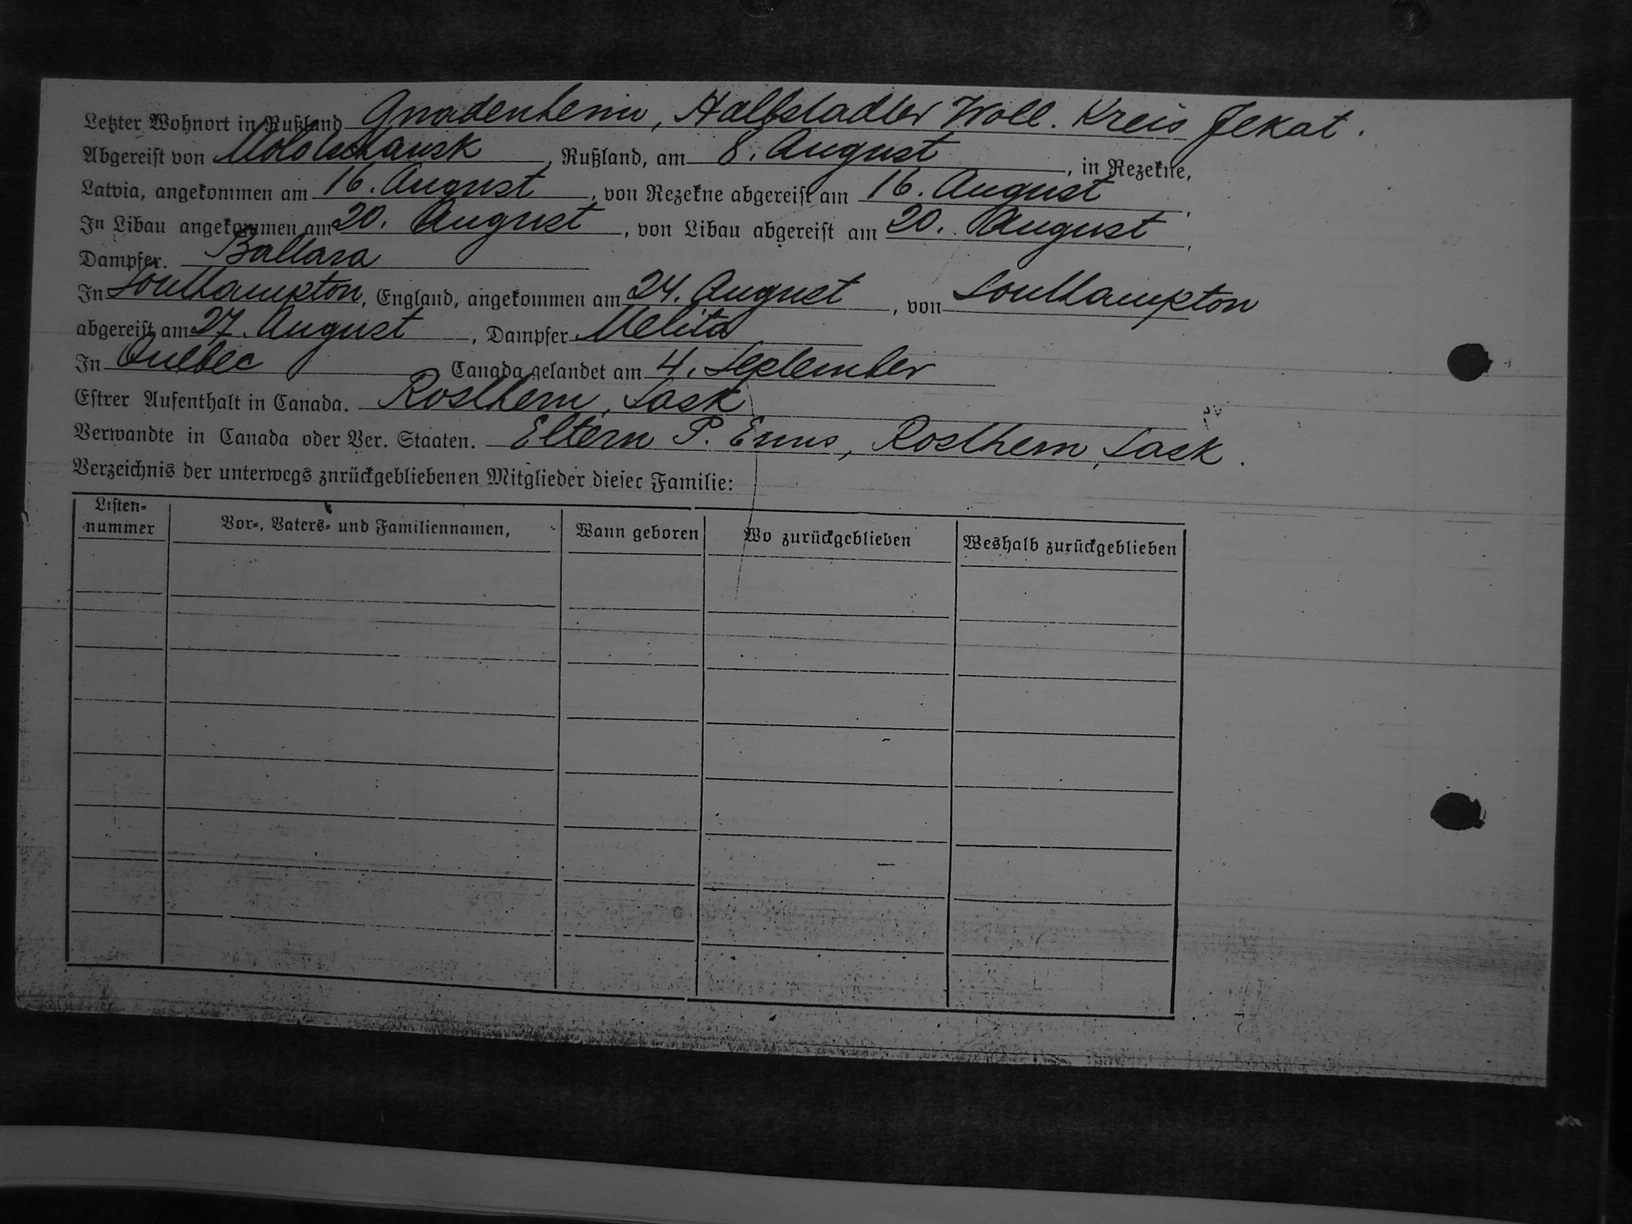 Letzter Wohnort in Rußland Gnadenheim, Halbstadter Woll. Kreis Jekat.
Abgereist von Molotschansk, Rußland, am 8. August, in Rezekne,
Latvia, angekommen am 16. August, von Rezekne abgereist am 16. August.
In Libau angekommen am 20. August, von Libau abgereist am 20. August,
Dampfer. Baltara
In Southampton, England, angekommen am 24. August, von Southampton
abgereist am 27. August, Dampfer Melita
In Quebec Canada gelandet am 4. September
Estrer Aufenthalt in Canada. Rosthern, Sask
Verwandte in Canada oder Ver. Staaten. Eltern P. Enns, Rosthern, Sask.
Verzeichnis der unterwegs znrückgebliebenen Mitglieder diesec Familie:
Listen-
nummer
Vor-, Vaters- und Familiennamen,
Wann geboren
Wo zurückgeblieben
Weshalb zurückgeblieben